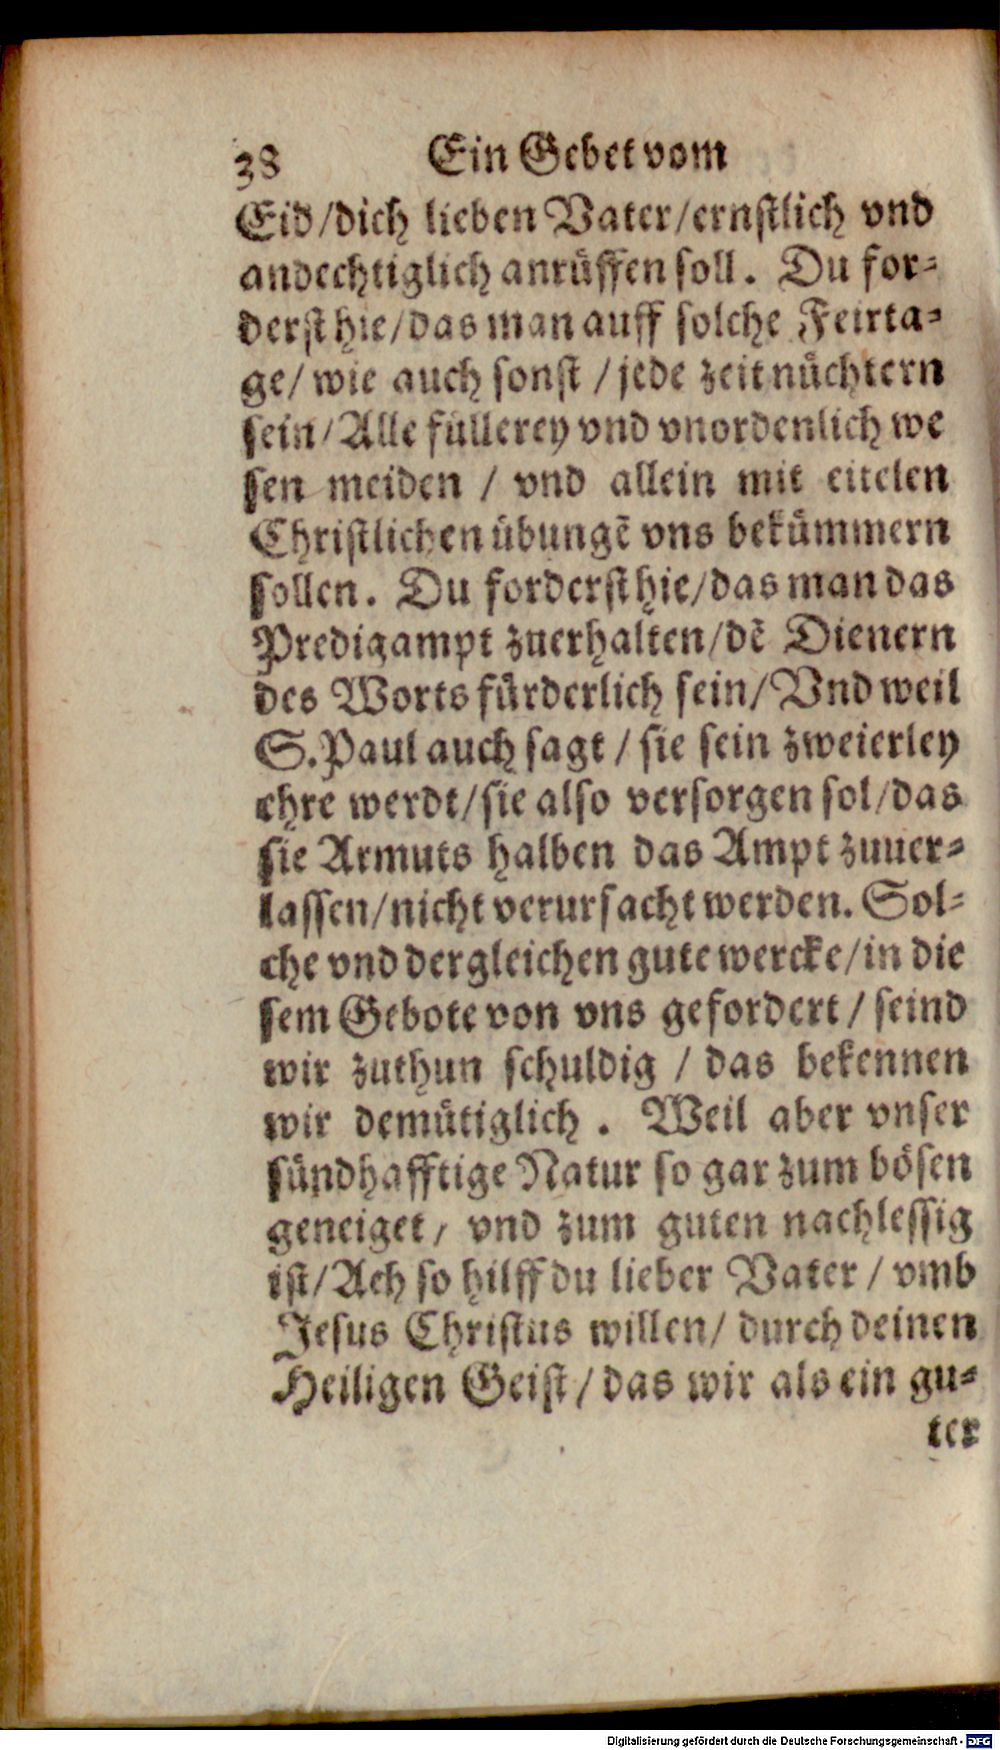 38 Ein Gebet vom
Eid/dich lieben Vater/ernstlich vnd
andechtiglich anrüffen soll. Du for-
derst hie/das man auff solche Feirta-
ge/ wie auch sonst / jede zeit nüchtern
sein/Alle füllerey vnd vnordenlich we
sen meiden / vnd allein mit eitelen
Christlichen übungẽ vns bekümmern
sollen. Du forderst hie/das man das
Predigampt zuerhalten/dẽ Dienern
des Worts fürderlich sein/Vnd weil
S.Paul auch sagt / sie sein zweierley
ehre werdt/sie also versorgen sol/das
sie Armuts halben das Ampt zuuer-
lassen/nicht verursacht werden. Sol-
che vnd dergleichen gute wercke/in die
sem Gebote von vns gefordert / seind
wir zuthun schuldig / das bekennen
wir demütiglich . Weil aber vnser
sündhafftige Natur so gar zum bösen
geneiget, vnd zum guten nachlessig
ist/Ach so hilff du lieber Vater / vmb
Jesus Christus willen/ durch deinen
Heiligen Geist/das wir als ein gu-
ter
Digitalisierung gefördert durch die Deutsche Forschungsgemeinschaft - DFG